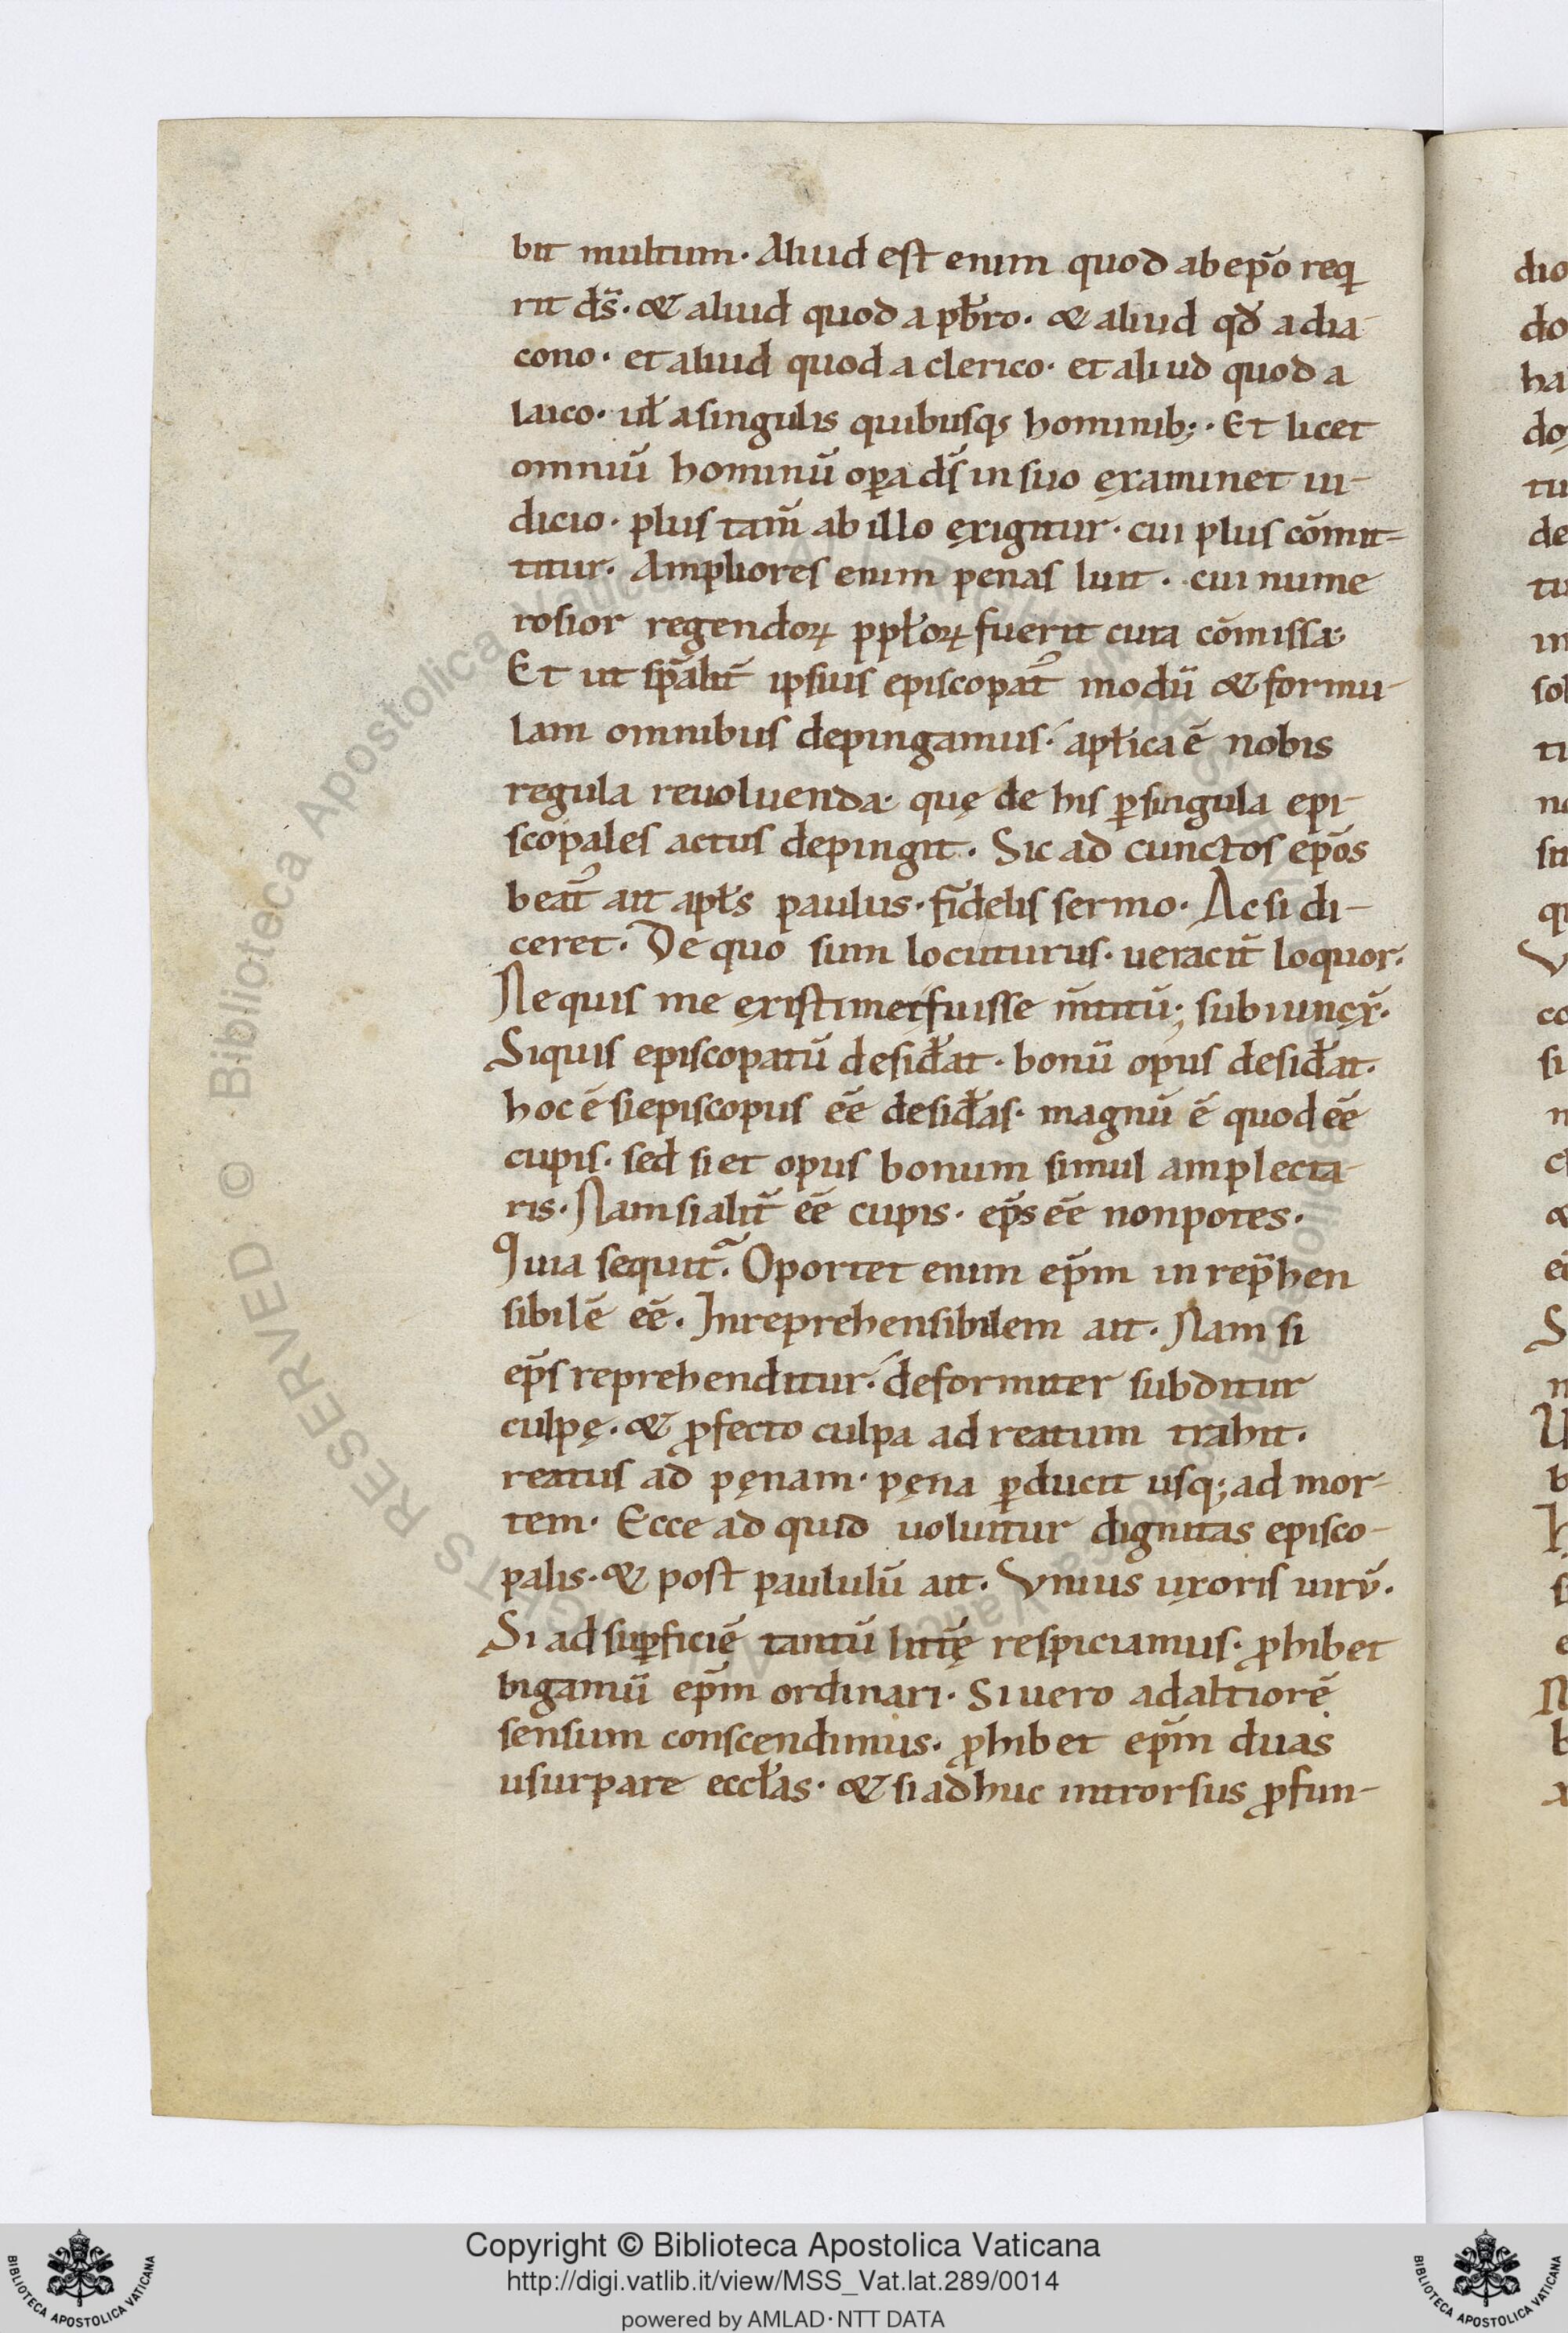 bit multum· Aliud est enim quod ab ep̄o req
rit d̄s· & aliud quod a pƀro· & aliud qđ a dia-
cono· et aliud quod a clerico· et aliud quod a
laico· uł a singulis quibusq; hominib;· Et licet
omniū hominū oꝑa d̄s in suo examinet iu-
dicio· plus tam̄ ab illo exigitur· cui plus cōmit-
titur· Ampliores enim penas luit· cui nume
rosior regendoꝝ ppłoꝝ fuerit cura cōmissa·
Et ut sp̄alit̄ ipsius episcopat᷒ modū & formu-
lam omnibus depingamus· apłica ē nobis
regula reuoluenda· quę de his ꝑ singula epi-
scopales actus depingit· Sic ad cunctos ep̄os
beat᷒ ait apłs paulus· fidelis sermo· Ac si di-
ceret· De quo sum locuturus· ueracit̄ loquor·
Ne quis me existimet fuisse m̄titū; subiunx̄·
Siquis episcopatū desiđat· bonū opus desiđat·
hoc ē si episcopus eē desiđas· magnū ē quod eē
cupis· sed si et opus bonum simul amplecta-
ris· Nam si alit̄ eē cupis· ep̄s eē non potes·
Quia sequit᷑· Oportet enim ep̄m inrep̄hen
sibilē eē· Inreprehensibilem ait· Nam si
ep̄s reprehenditur· deformiter subditur
culpę· & ꝓfecto culpa ad reatum trahit·
reatus ad pęnam· pęna ꝑducit usq; ad mor-
tem· Ecce ad quid uoluitur dignitas episco-
palis· & post paululū ait· Vnius uxoris uirū·
Si ad suꝑficiē tantū litt̄ę respiciamus· ꝓhibet
bigamū ep̄m ordinari· Si uero ad altiorē
sensum conscendimus· ꝓhibet ep̄m duas
usurpare eccłas· & si adhuc introrsus ꝓfun-
Copyright © Biblioteca Apostolica Vaticana
http://digi.vatlib.it/view/MSS_Vat.lat.289/0014
powered by AMLAD·NTT DATA